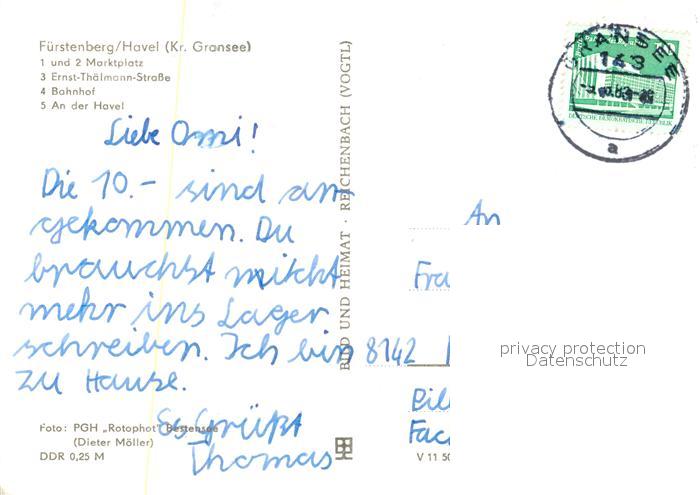 Fürstenberg/Havel (Kr. Gransee)
1 und 2 Marktplatz
3 Ernst-Thälmann-Straße
4 Bahnhof
5 An der Havel
Liebe Omi!
Die 10.- sind an-
gekommen. Du
brauchst nicht
mehr ins Lager
schreiben. Ich bin
zu Hause.
Es Grüßt
Thomas
Foto: PGH „Rotophot" Bestensee
(Dieter Möller)
DDR 0,25 M
BILD UND HEIMAT · REICHENBACH (VOGTL)
V 11 50
GRANSEE
143
a
DEUTSCHE DEMOKRATISCHE REPUBLIK
An
Fra
8142
Fac
privacy protection
Datenschutz